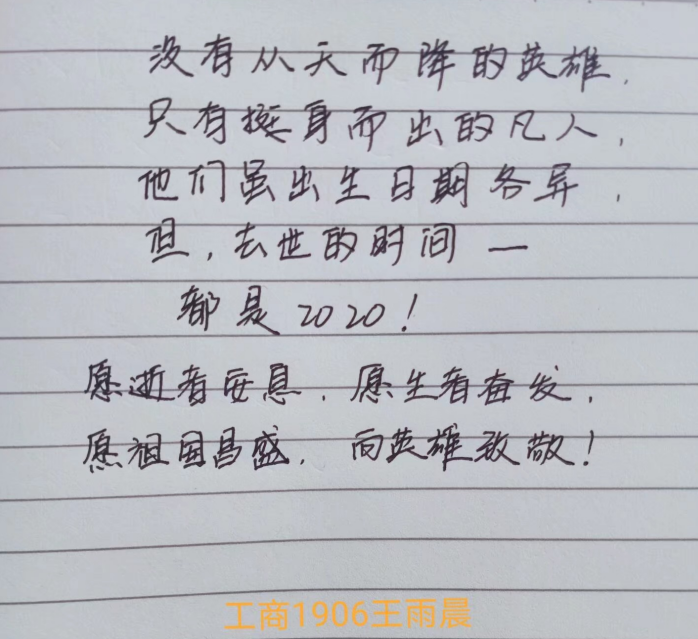 没有从天而降的英雄，
只有挺身而出的凡人，
他们虽出生日期各异，
但，去世的时间—
都是2020！
愿逝者安息，愿生者奋发，
愿祖国昌盛，向英雄致敬！
工商1906王雨晨